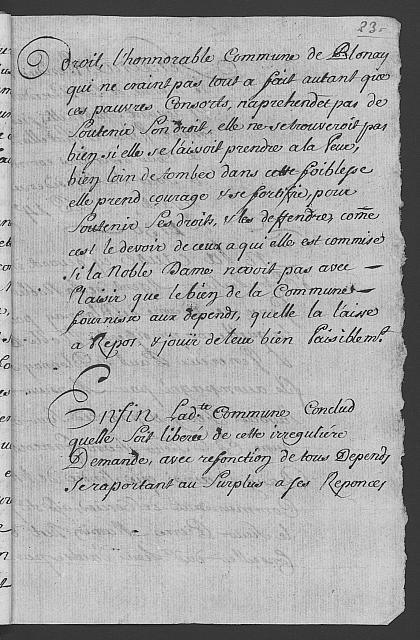 23.
droit, l'honnorable Commune de Blonay
qui ne craint pas tout a fait autant que
ces pauvres Consorts, n'aprehendet pas de
Soutenir Son droit, elle ne se trouveroit pas
bien si elle se laissoit prendre a la Peur,
bien loin de tomber dans cette foiblesse
elle prend courage & se fortifie, pour
Soutenir Ses droits, & les deffendre, come
cest le devoir de ceux a qui elle est commise
Si la Noble Dame ne voit pas avec
Plaisir que le bien de la Commune
fournisse aux depends, quelle la laisse
a Repos & jouir de leur bien Paisiblemt.
Enfin Ladte. Commune Conclud
quelle Soit liberée de cette irreguliére
Demande, avec refonction de tous Depends
Se raportant au Surplus a ses Reponces